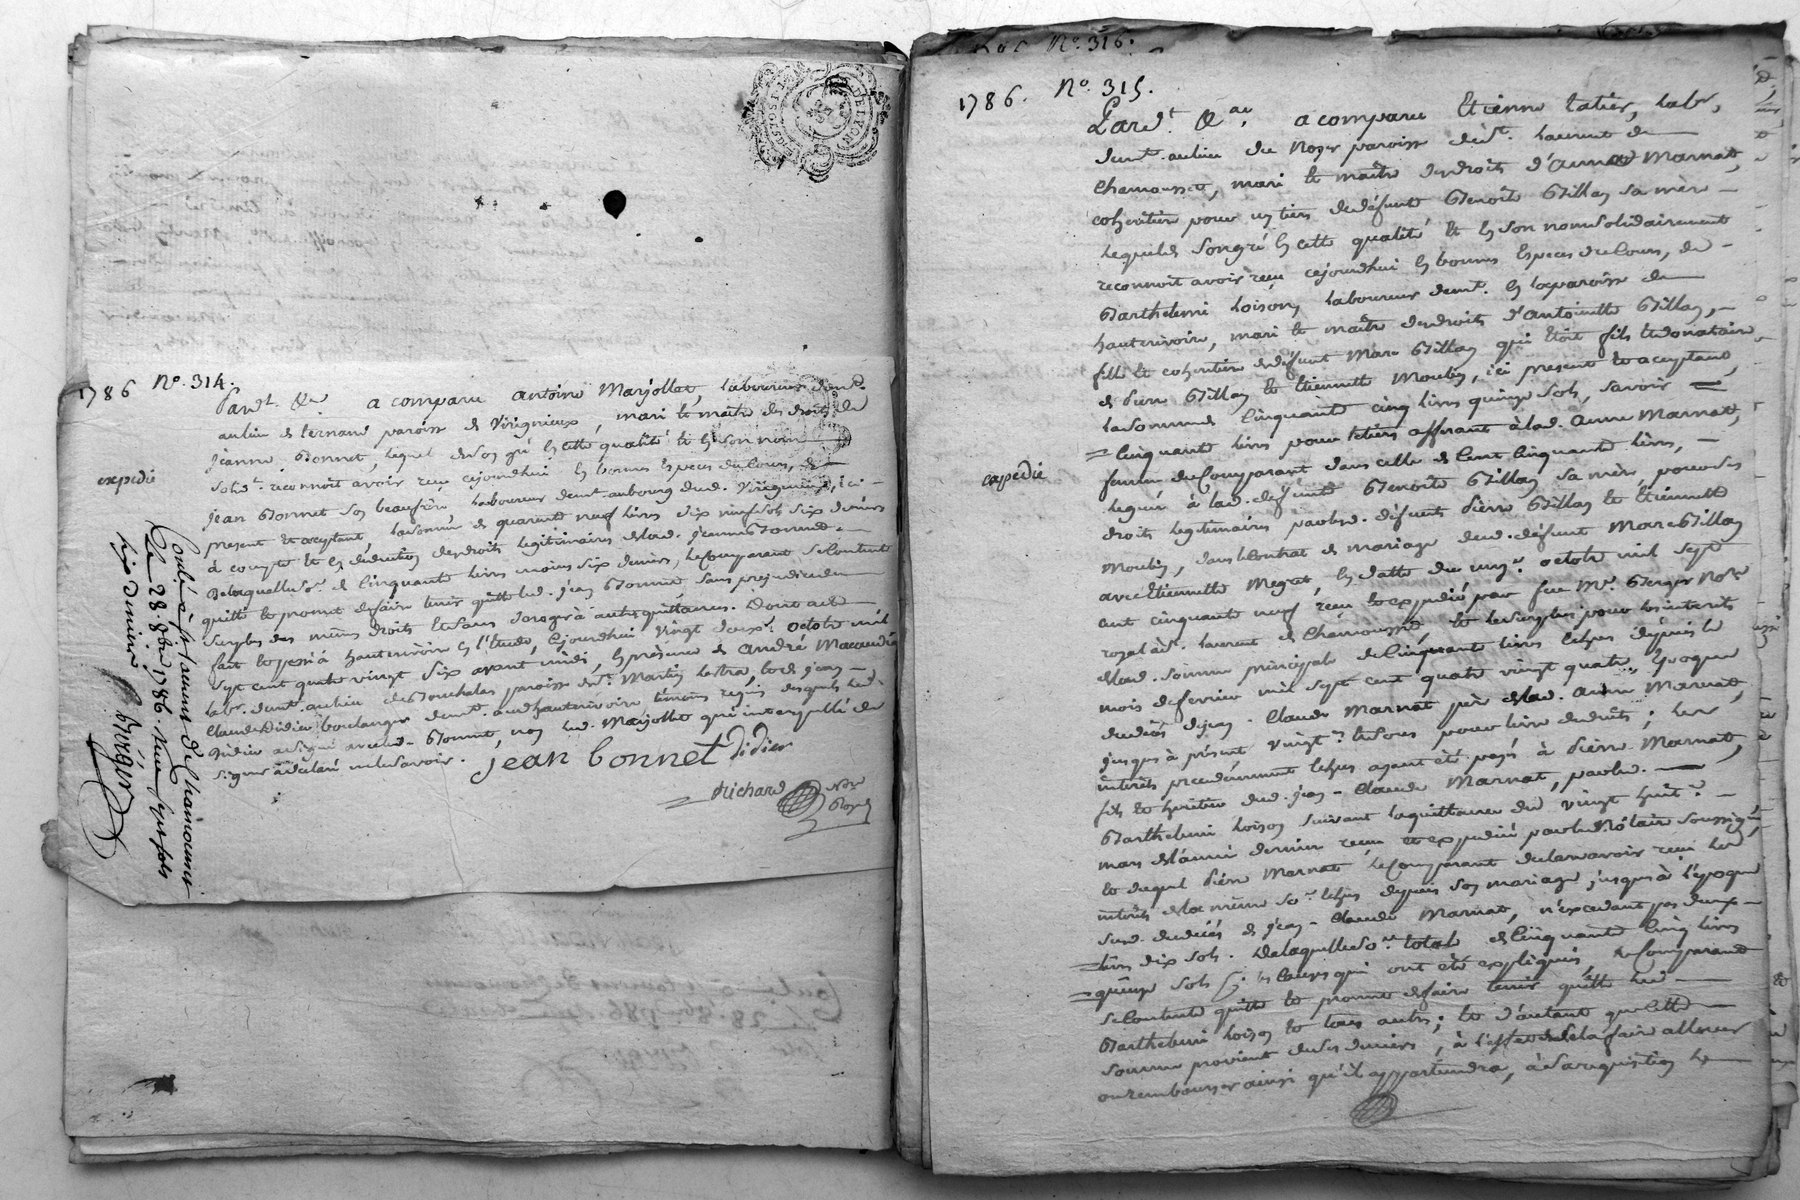 1786 Nº. 314.
Pardt. &a a comparu antoine Marjollet, laboureur demt.
au lieu de lernand paroisse de Virignieux, mari et maître des droits de
jeanne Bonnet, lequel de son gré en cette qualité et en son nom
solidt. reconnoit avoir reçu cejourdhui en bonnes especes du cours, de
jean Bonnet son beaufrère, laboureur demt. au bourg dud. Virignieux, ici
present et acceptant, la somme de quarante neuf livres dix neuf sols six deniers
à compte et en deduction des droits legitimaires de lad. jeanne Bonnet
De laquelle so. de cinquante livres moins six deniers, le comparant se contente
quitte et promet de faire tenir quitte led. jean Bonnet sans prejudice du
surplus des mêmes droits et sans deroger à autres quittances. Dont acte
fait et passé à hauterivoire en l'étude, cejourdhui vingt deuxe. octobre mil
sept cent quatre vingt six avant midi, en présence de andré
labr. demt. au lieu de paroisse de st. Martin lestra, et de jean
Claude Didier boulanger demt. aud. hauterivoire témoins requis desquels led.
Didier a signé avec led. Bonnet, non led. Marjollet qui interpellé de
signer a déclaré ne le savoir.
jean bonnet Didier
Richard Nore
Royal
expédié
Controlé à st laurent de chamousset
Le 28 8bre 1786. Reçu sept sols
six deniers
Berger
Nº. 316.
1786. Nº. 315.
Pardt. &a. a comparu Etienne latier, labr.
demt. au lieu du Noyer paroisse de st. laurent de
Chamousset, mari et maître des droits d'anne Marnat,
cohéritière pour un tiers de défunte Benoite Billon sa mère
lequel de son gré en cette qualité et en son nom solidairement
reconnoit avoir reçu cejourdhui en bonnes Especes du cours, de
Barthelemi loison, laboureur demt. en la paroisse de
hauterivoire, mari et maître des droits d'antoinette Billon,
fille et cohéritière de défunt Marc Billon qui étoit fils et donataire
de pierre Billon et Etiennette Moulin, ici present et acceptant,
la somme de Cinquante cinq livres quinze sols, savoir
Cinquante livres pour le tiers afferant à lad. anne Marnat,
femme du Comparant dans celle de Cent cinquante livres,
leguée à lad. défunte Benoite Billon sa mère pour ses
droits legitimaires par led. défunt pierre Billon et Etiennette
Moulin, dans le Contrat de mariage dud. défunt Marc Billon
avec Etiennette Megret, en datte du onze. octobre mil sept
cent cinquante neuf reçu et expédié par feu Me. Berger Nore
royal à st. laurent de Chamousset et le surplus pour les interets
de lad. somme principale de Cinquante livres échus depuis le
mois de fevrier mil sept cent quatre vingt quatre, époque
du décès de jean-Claude Marnat père de lad. anne Marnat,
jusqu'à présent vingt. et sous pour livre déduits; les
interêts precedemment echus ayant été payés à pierre Marnat,
fils et heritier dud. jean-Claude Marnat, par led.
Barthelemi loison suivant la quittance du vingt huit.
mars de l'année derniere reçue et expédiée par le Nôtaire soussigné
et duquel pierre Marnat le Comparant déclare avoir reçu les
interêts de la même so. echus depuis son mariage, jusqu'à l'époque
susd. du décès de jean-Claude Marnat, n'excedant pas deux
livres dix sols. De laquelle so. totale de Cinquante cinq livres
quinze sols les causes qui ont été expliquées, le Comparant
se contente quitte et promet de faire tenir quitte led.
Barthelemi loison et tous autres; et d'autant que cette
somme provient de ses deniers, à l'effet de se la faire allouer
ou rembourser ainsi qu'il appartiendra, à sa requisition le
expédié